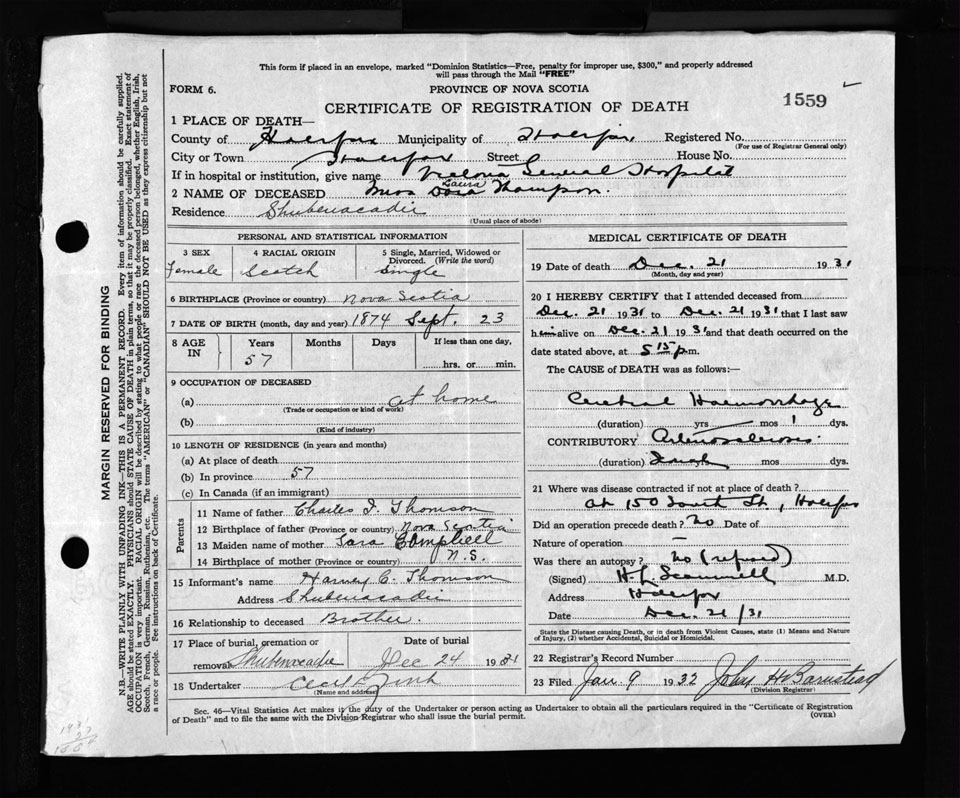 This form if placed in an envelope, marked "Dominion Statistics—Free, penalty for improper use, $300," and properly addressed
will pass through the Mail "FREE"
FORM 6.
PROVINCE OF NOVA SCOTIA
1559
CERTIFICATE OF REGISTRATION OF DEATH
1 PLACE OF DEATH—
County of Halifax Municipality of Halifax Registered No.
(For use of Registrar General only)
City or Town Halifax Street House No.
If in hospital or institution, give name Victoria General Hospital
2 NAME OF DECEASED Miss Laura Thompson.
Residence Shubenacadie
(Usual place of abode)
PERSONAL AND STATISTICAL INFORMATION
3 SEX Female
4 RACIAL ORIGIN Scotch
5 Single, Married, Widowed or Divorced. (Write the word) Single
6 BIRTHPLACE (Province or country) Nova Scotia
7 DATE OF BIRTH (month, day and year) 1874 Sept. 23
8 AGE IN Years Months Days If less than one day,
57 hrs. or min.
9 OCCUPATION OF DECEASED
(a) at home
(Trade or occupation or kind of work)
(b)
(Kind of industry)
10 LENGTH OF RESIDENCE (in years and months)
(a) At place of death
(b) In province 57
(c) In Canada (if an immigrant)
Parents
11 Name of father Charles I. Thomson
12 Birthplace of father (Province or country) Nova Scotia
13 Maiden name of mother Sara Campbell
14 Birthplace of mother (Province or country) N.S.
15 Informant's name Harvey C. Thomson
Address Shubenacadie
16 Relationship to deceased Brother.
17 Place of burial, cremation or removal Shubenacadie
Date of burial Dec 24 1931
18 Undertaker Cecil E. Zink
(Name and address)
MEDICAL CERTIFICATE OF DEATH
19 Date of death Dec. 21 1931
(Month, day and year)
20 I HEREBY CERTIFY that I attended deceased from
Dec. 21 1931 to Dec. 21 1931 that I last saw
h alive on Dec. 21 1931 and that death occurred on
date stated above, at 5 15 p.m.
The CAUSE of DEATH was as follows:—
Cerebral Haemorrhage
(duration) yrs mos 1 dys.
CONTRIBUTORY Arteriosclerosis.
(duration) mos dys.
21 Where was disease contracted if not at place of death?
at 150 South St., Halifax
Did an operation precede death? No Date of
Nature of operation —
Was there an autopsy? No (refused)
(Signed) H. L. Scammell M.D.
Address Halifax
Date Dec. 21/31
State the Disease causing Death, or in death from Violent Causes, state (1) Means and Nature
of Injury, (2) whether Accidental, Suicidal or Homicidal.
22 Registrar's Record Number
23 Filed Jan. 9 1932 John H Barnstead
(Division Registrar)
Sec. 46—Vital Statistics Act makes it the duty of the Undertaker or person acting as Undertaker to obtain all the particulars required in the "Certificate of Registration
of Death" and to file the same with the Division Registrar who shall issue the burial permit.
(OVER)
MARGIN RESERVED FOR BINDING
N.B.—WRITE PLAINLY WITH UNFADING INK—THIS IS A PERMANENT RECORD. Every item of information should be carefully supplied.
AGE should be stated EXACTLY. PHYSICIANS should STATE CAUSE OF DEATH in plain terms, so that it may be properly classified. Exact statement of
OCCUPATION is very important. RACIAL ORIGIN will be described by stating to what people or race the deceased person belonged, whether English, Irish,
Scotch, French, German, Russian, Ruthenian, etc. The terms "AMERICAN" or "CANADIAN" SHOULD NOT BE USED as they express citizenship but not
a race or people. See instructions on back of Certificate.